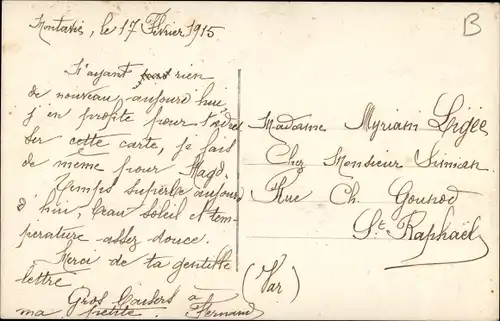 Montavis, le 17 Février 1915
N'ayant rien
de nouveau aujourd hui,
j'en profite pour t'adres
ser cette carte, je fais
de même pour Magd.
Temps superbe aujourd
hui, beau soleil et tem-
pérature assez douce.
Merci de ta gentille
lettre
Gros baisers à
ma petite. Fernand
B
Madame Myriam Ligée
Chez Monsieur Simian
Rue Ch. Gounod
St Raphaël
(Var)